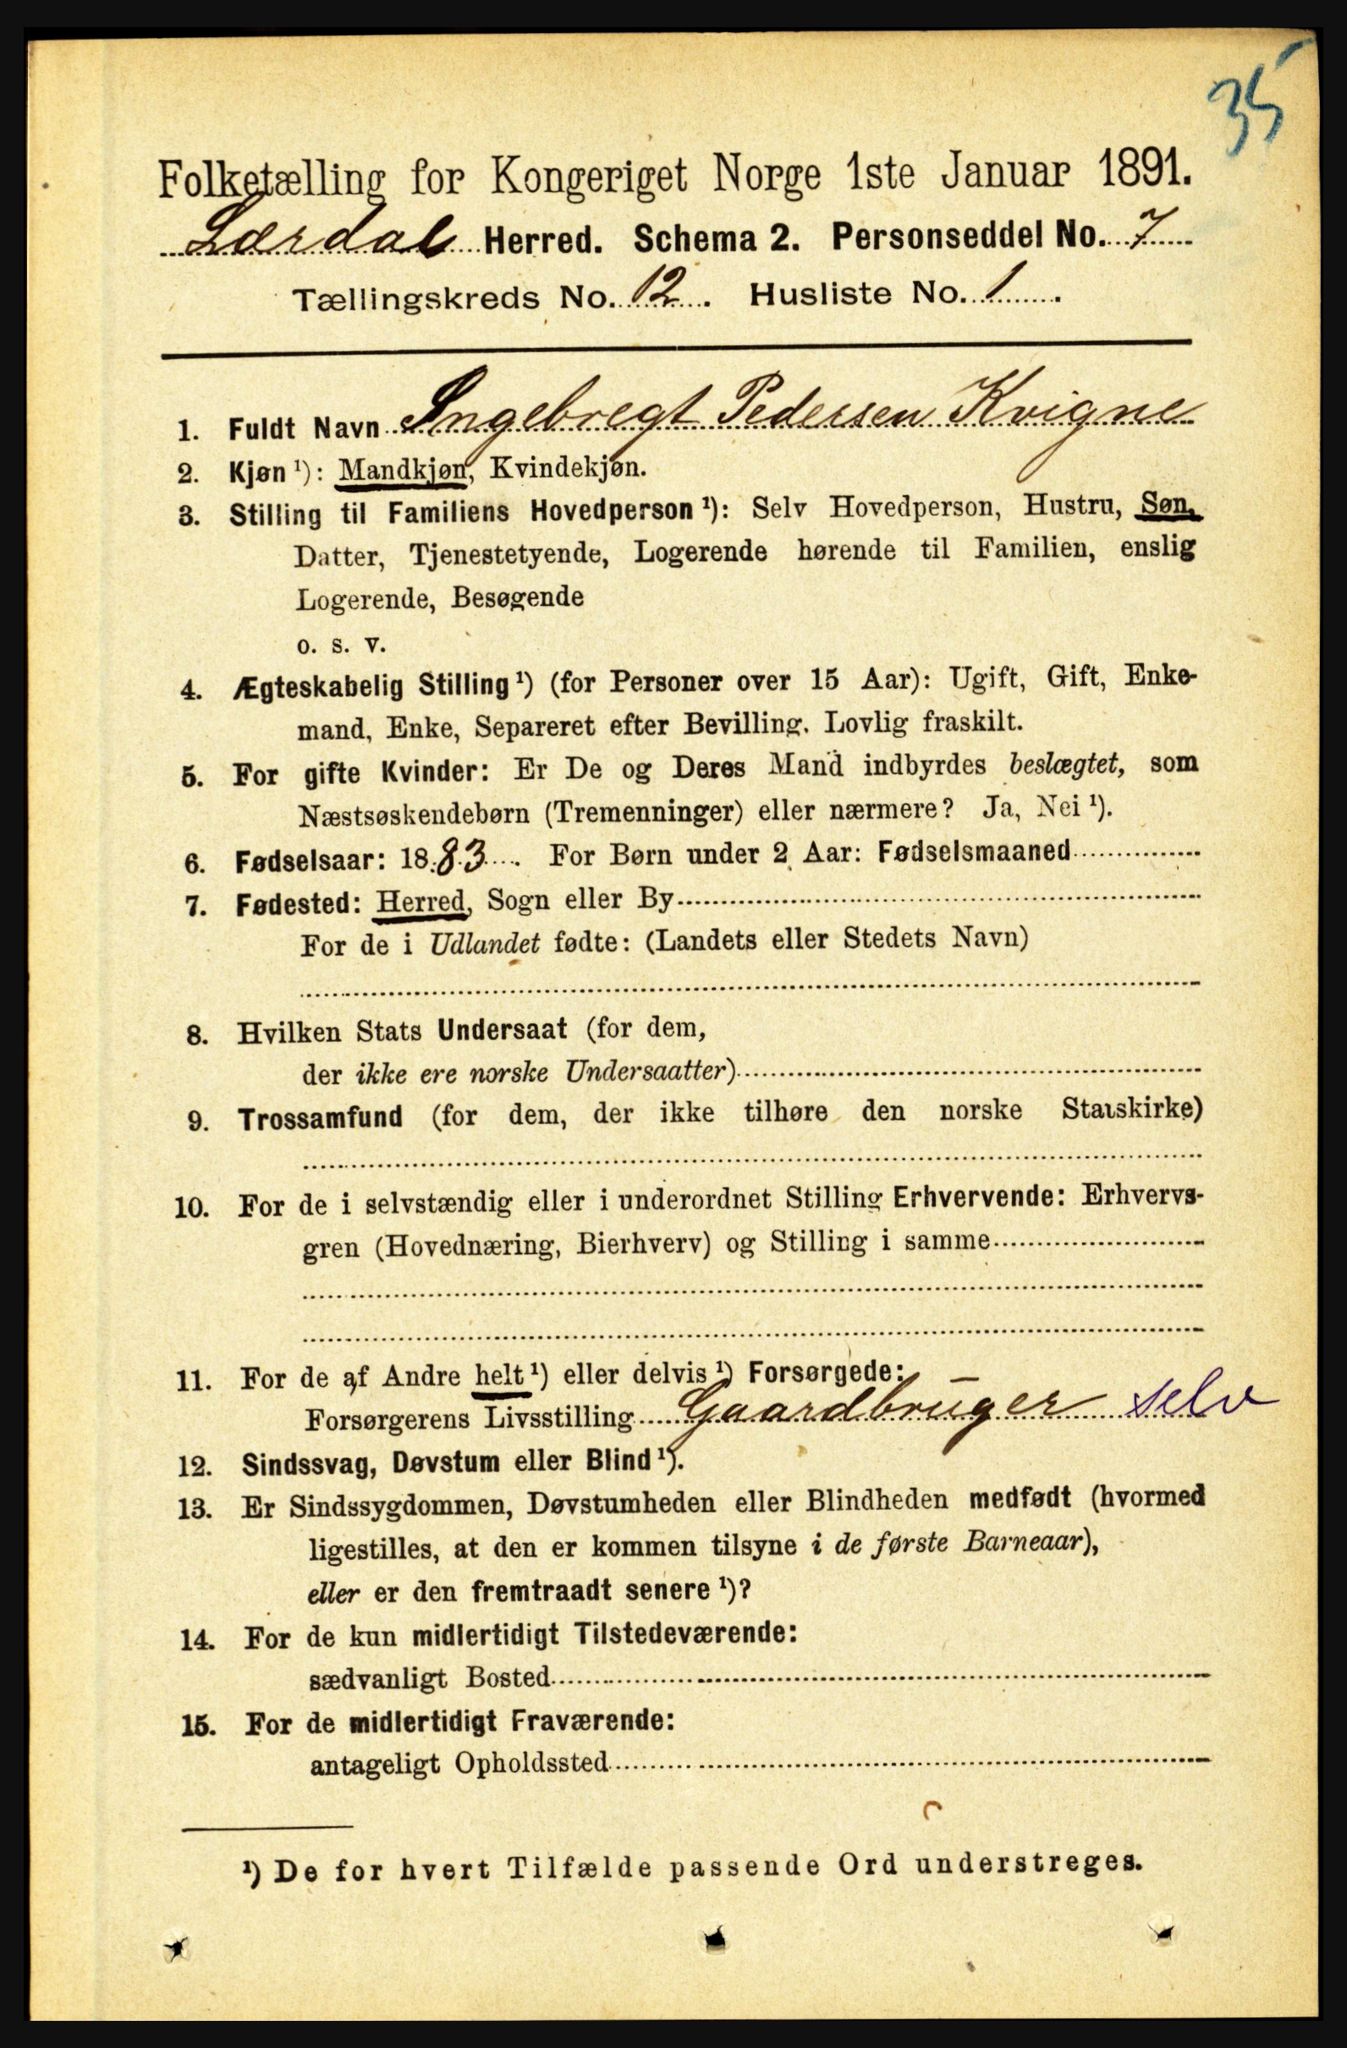 35
Folketælling for Kongeriget Norge 1ste Januar 1891.
Lærdal Herred. Schema 2. Personseddel No. 7
Tællingskreds No. 12. Husliste No. 1.
1. Fuldt Navn Ingebregt Pedersen Kvigne
2. Kjøn ¹): Mandkjøn, Kvindekjøn.
3. Stilling til Familiens Hovedperson ¹): Selv Hovedperson, Hustru, Søn,
Datter, Tjenestetyende, Logerende hørende til Familien, enslig
Logerende, Besøgende
o. s. v.
4. Ægteskabelig Stilling ¹) (for Personer over 15 Aar): Ugift, Gift, Enke-
mand, Enke, Separeret efter Bevilling. Lovlig fraskilt.
5. For gifte Kvinder: Er De og Deres Mand indbyrdes beslægtet, som
Næstsøskendebørn (Tremenninger) eller nærmere? Ja, Nei ¹).
6. Fødselsaar: 1883. For Børn under 2 Aar: Fødselsmaaned
7. Fødested: Herred, Sogn eller By
For de i Udlandet fødte: (Landets eller Stedets Navn)
8. Hvilken Stats Undersaat (for dem,
der ikke ere norske Undersaatter)
9. Trossamfund (for dem, der ikke tilhøre den norske Statskirke)
10. For de i selvstændig eller i underordnet Stilling Erhvervende: Erhvervs-
gren (Hovednæring, Bierhverv) og Stilling i samme
11. For de af Andre helt ¹) eller delvis ¹) Forsørgede:
Forsørgerens Livsstilling Gaardbruger selv
12. Sindssvag, Døvstum eller Blind ¹).
13. Er Sindssygdommen, Døvstumheden eller Blindheden medfødt (hvormed
ligestilles, at den er kommen tilsyne i de første Barneaar),
eller er den fremtraadt senere ¹)?
14. For de kun midlertidigt Tilstedeværende:
sædvanligt Bosted
15. For de midlertidigt Fraværende:
antageligt Opholdssted
¹) De for hvert Tilfælde passende Ord understreges.